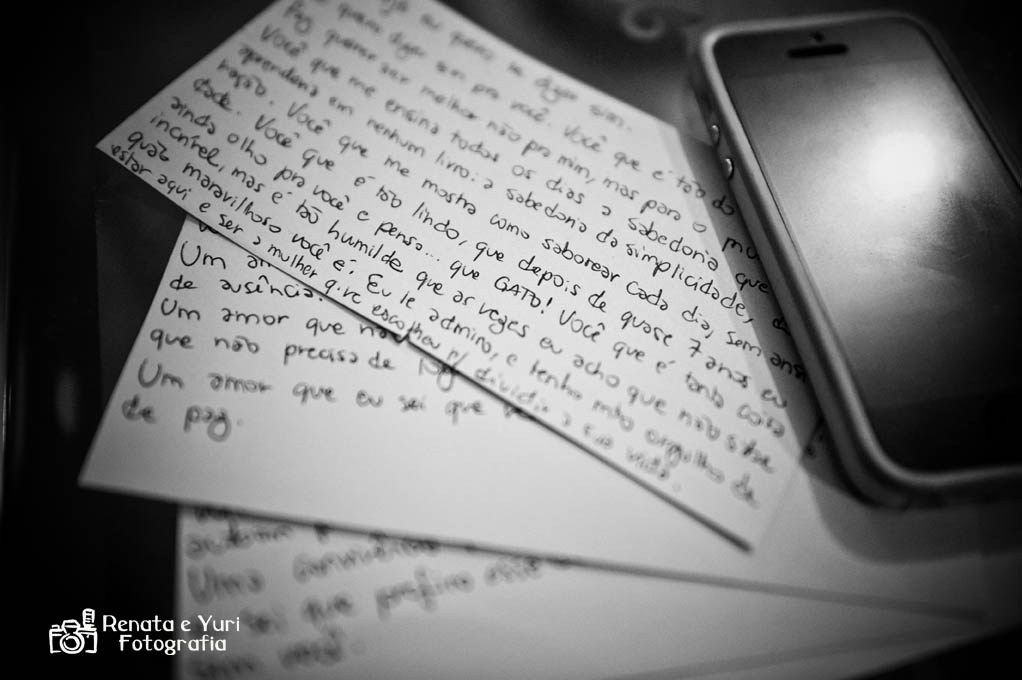 eu quero te dizer sim.
quero dizer sim pra você. Você que é tão do
faz querer ser melhor não pra mim, mas para o mu
Você que me ensina todos os dias a sabedoria que
aprenderia em nenhum livro: a sabedoria da simplicidade, d
nação. Você que me mostra como saborear cada dia, sem ansi
dade. Você que é tão lindo, que depois de quase 7 anos eu
ainda olho pra você e penso... que GATO! Você que é tanta coisa
incrível, mas é tão humilde que as vezes eu acho que não sabe
quão maravilhoso você é! Eu te admiro, e tenho muito orgulho de
estar aqui e ser a mulher que escolheu p/ dividir a sua vida.
Um a
de ausência.
Um amor que não
que não precisa de
Um amor que eu sei que
de paz.
Uma
sei que prefiro esse
sem você.
Renata e Yuri
Fotografia